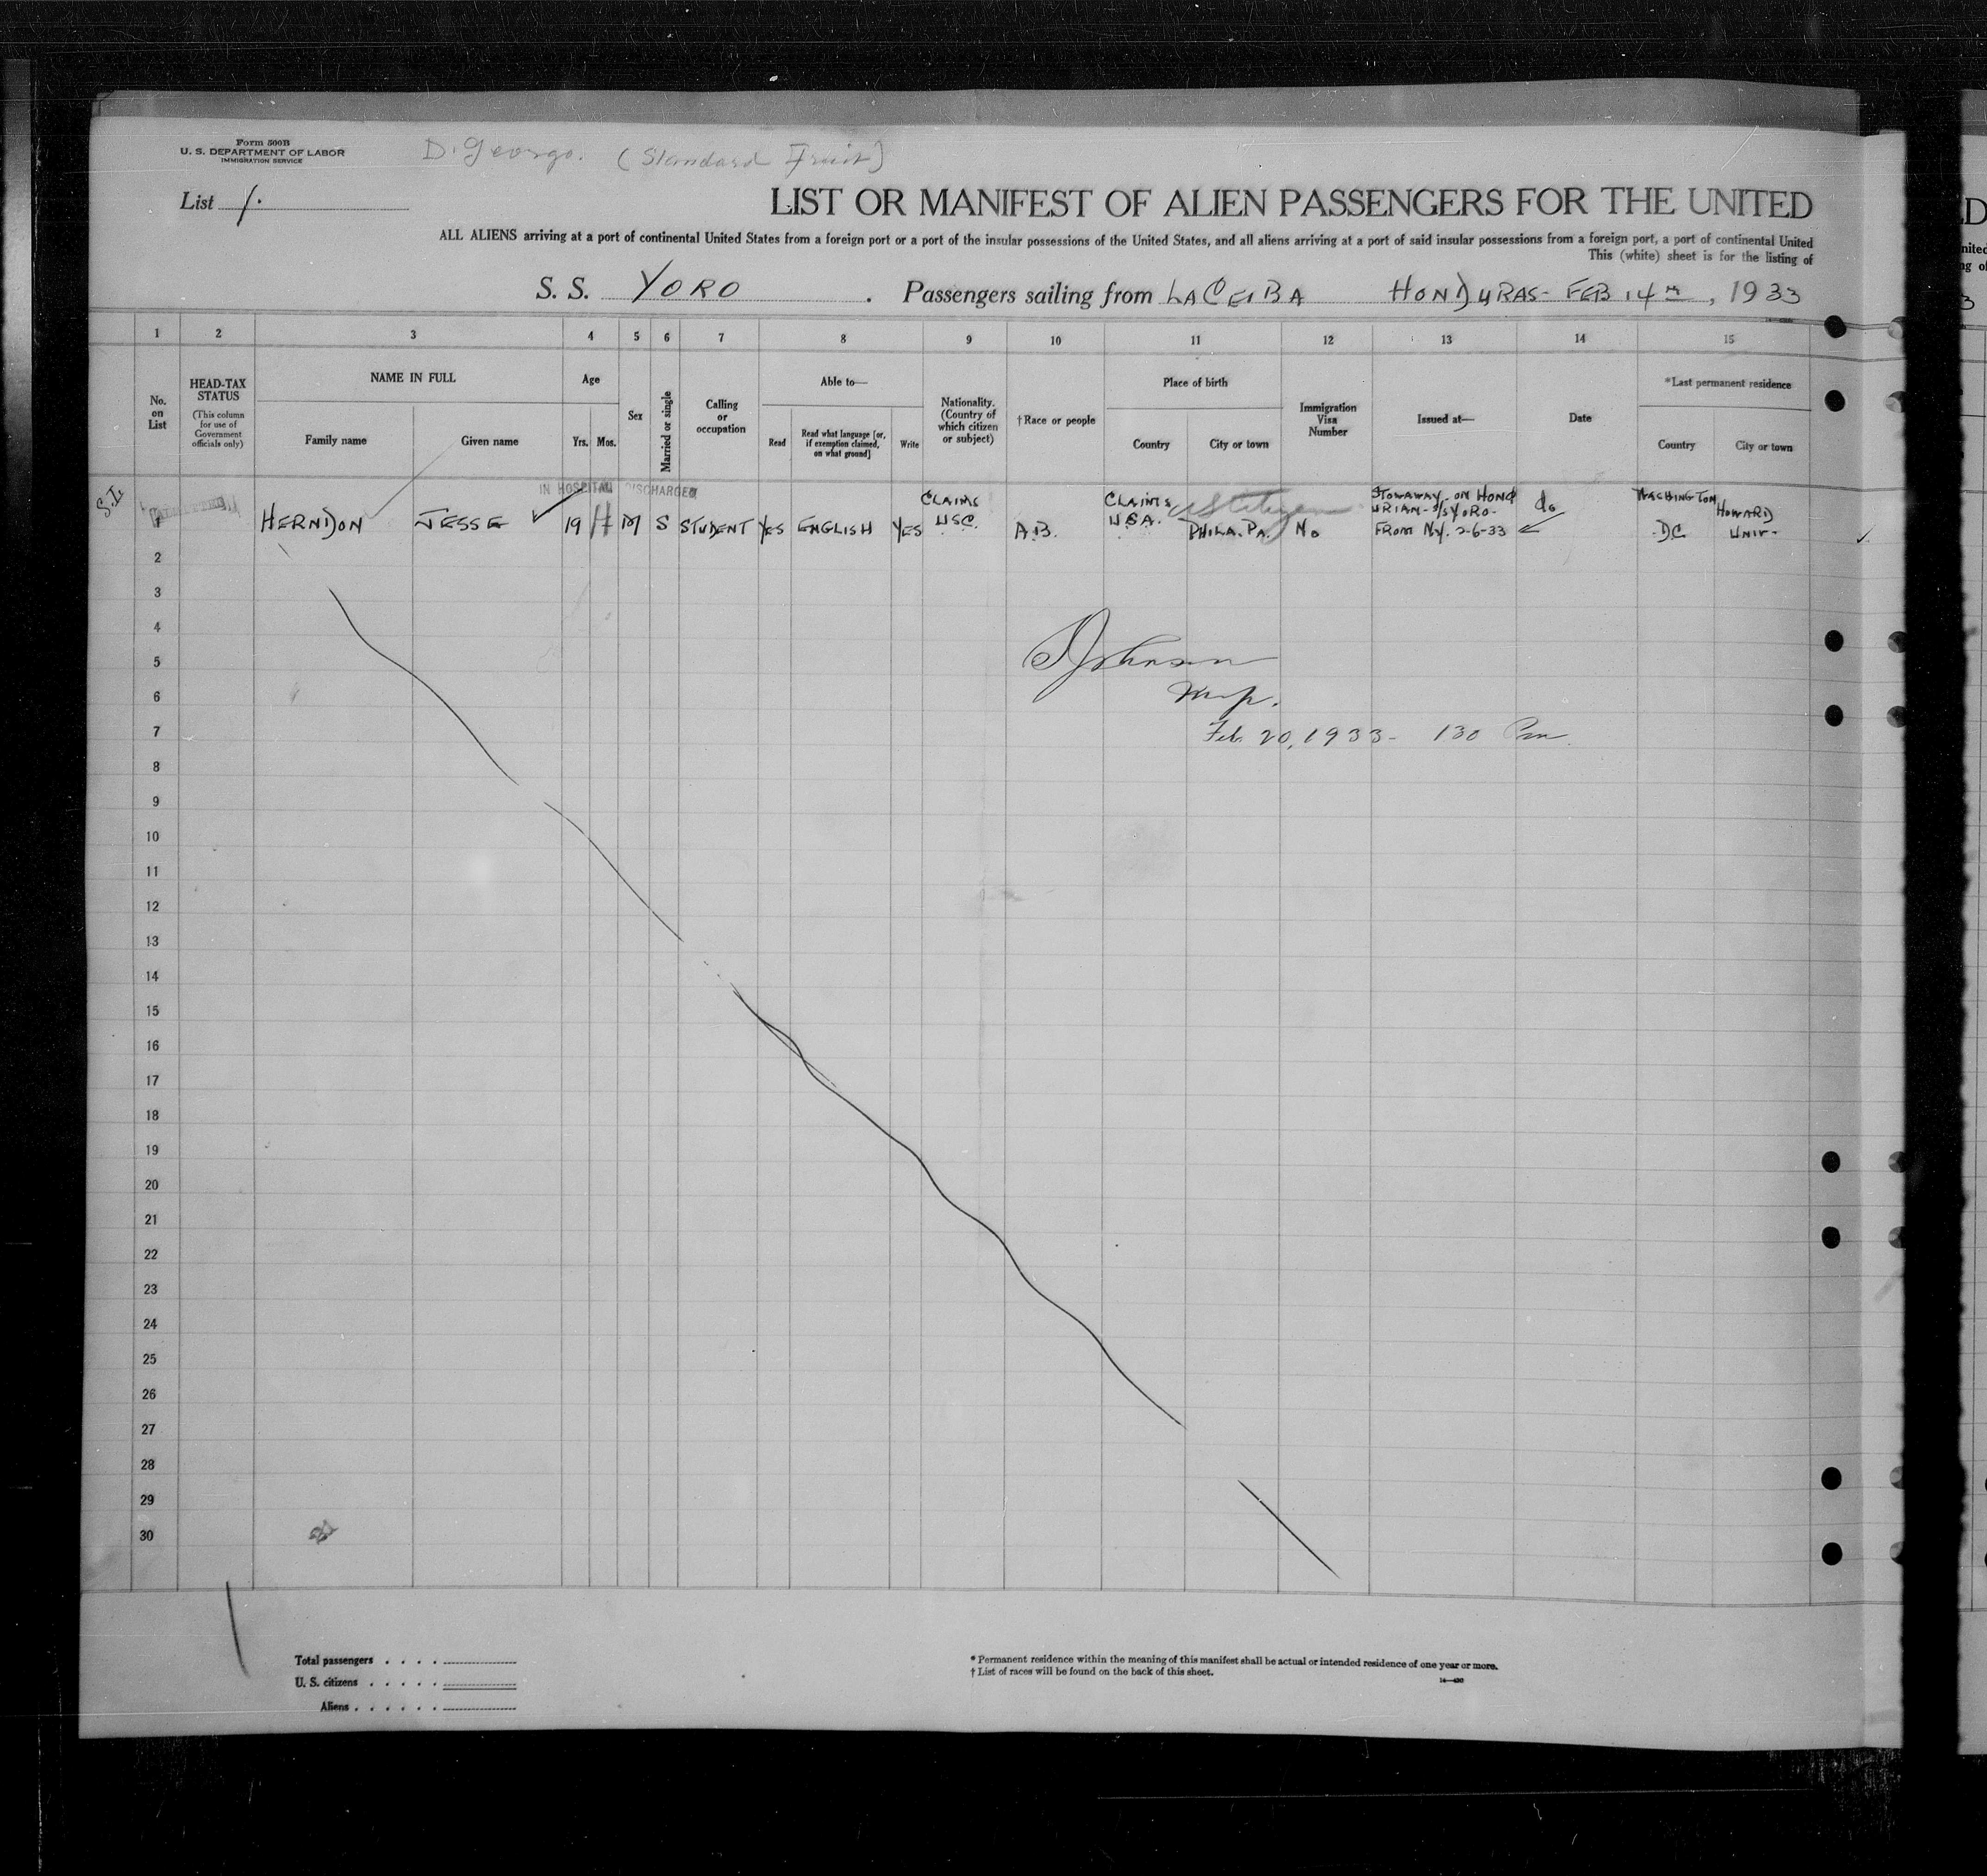 Form 500B
U. S. DEPARTMENT OF LABOR
IMMIGRATION SERVICE
D. George. (Standard Fruit)
List 1.
LIST OR MANIFEST OF ALIEN PASSENGERS FOR THE UNITED
ALL ALIENS arriving at a port of continental United States from a foreign port or a port of the insular possessions of the United States, and all aliens arriving at a port of said insular possessions from a foreign port, a port of continental United
This (white) sheet is for the listing of
S. S. YORO . Passengers sailing from LA CEIBA HONDURAS- FEB 14th, 1933
1 2 3 4 5 6 7 8 9 10 11 12 13 14 15
No. on List
HEAD-TAX STATUS
(This column for use of Government officials only)
NAME IN FULL
Family name
Given name
Age
Yrs. Mos.
Sex
Married or single
Calling or occupation
Able to—
Read
Read what language [or, if exemption claimed, on what ground]
Write
Nationality. (Country of which citizen or subject)
†Race or people
Place of birth
Country
City or town
Immigration Visa Number
Issued at—
Date
*Last permanent residence
Country
City or town
S.I.
IN HOSPITAL DISCHARGED
1 HERNDON JESSE 19 M S STUDENT YES ENGLISH YES CLAIMS USC. A.B. CLAIMS USA. PHILA. PA. No STOWAWAY- ON HONDURIAN- S/S YORO- FROM NY. 2-6-33 do WASHINGTON DC HOWARD UNIV-
US Citizen
2
3
4
5
6
7
8
9
10
11
12
13
14
15
16
17
18
19
20
21
22
23
24
25
26
27
28
29
30
Johnson
Insp.
Feb. 20, 1933- 130 Pm
Total passengers . . . .
U. S. citizens . . . . .
Aliens . . . . . .
* Permanent residence within the meaning of this manifest shall be actual or intended residence of one year or more.
† List of races will be found on the back of this sheet.